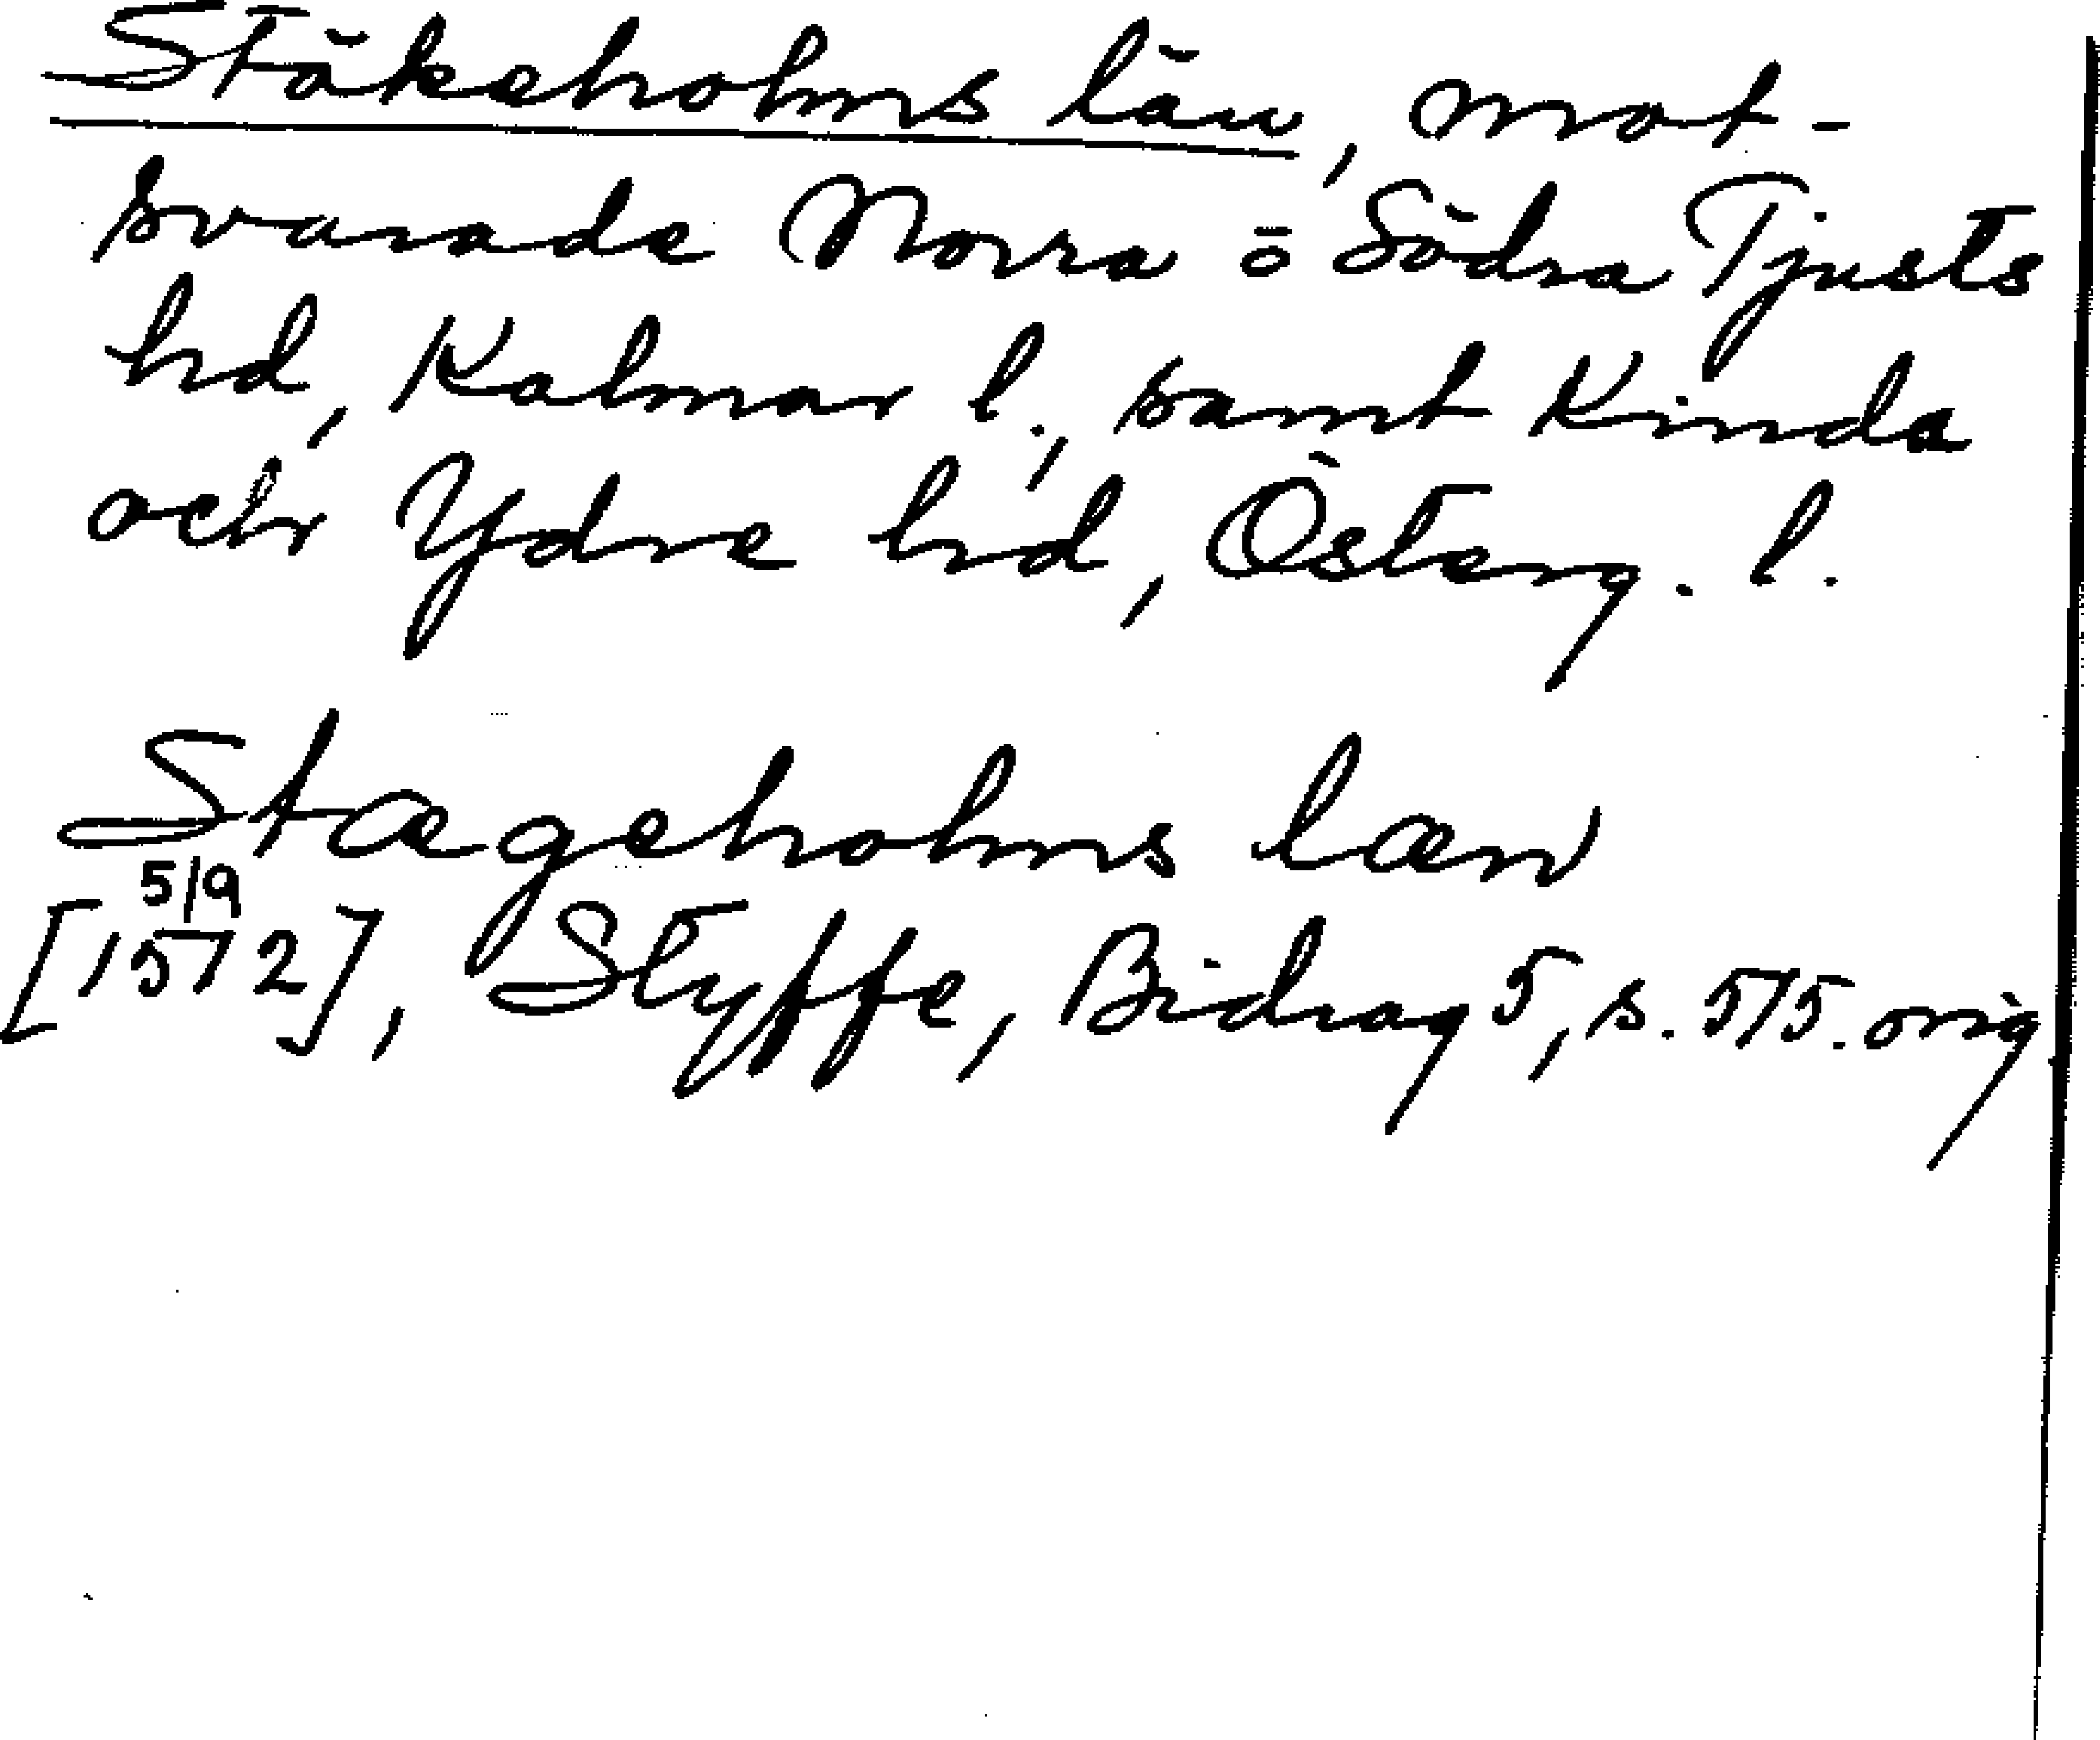 Stäkeholms län, mot-
svarade Norra o Södra Tjusts
hd, Kalmar l., samt Kinda
och Ydre hd, Österg. l.
Stægeholms læn
5/9
[1512], Styffe, Bidrag 5, s. 515. orig